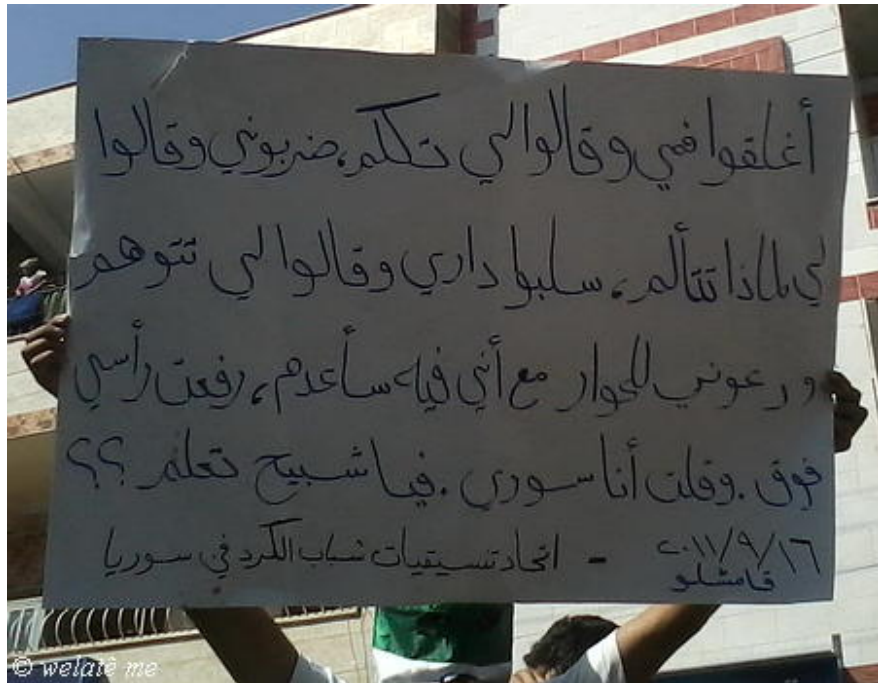 أغلقوا فمي وقالوا لي تكلم، ضربوني وقالوا
لي لماذا تتألم، سلبوا داري وقالوا لي تتوهم
ودعوني للحوار مع أني فيه سأعدم، رفعت رأسي
فوق. وقلت أنا سوري. فيا شبيح تعلم ؟؟
٢٠١١/٩/١٦ - اتحاد تنسيقيات شباب الكرد في سوريا
قامشلو
© welatê me